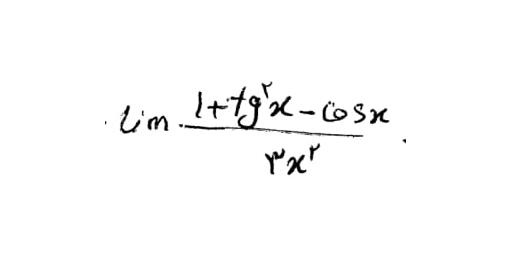 lim (1+tg^۲x-cosx)/(۳x^۲)